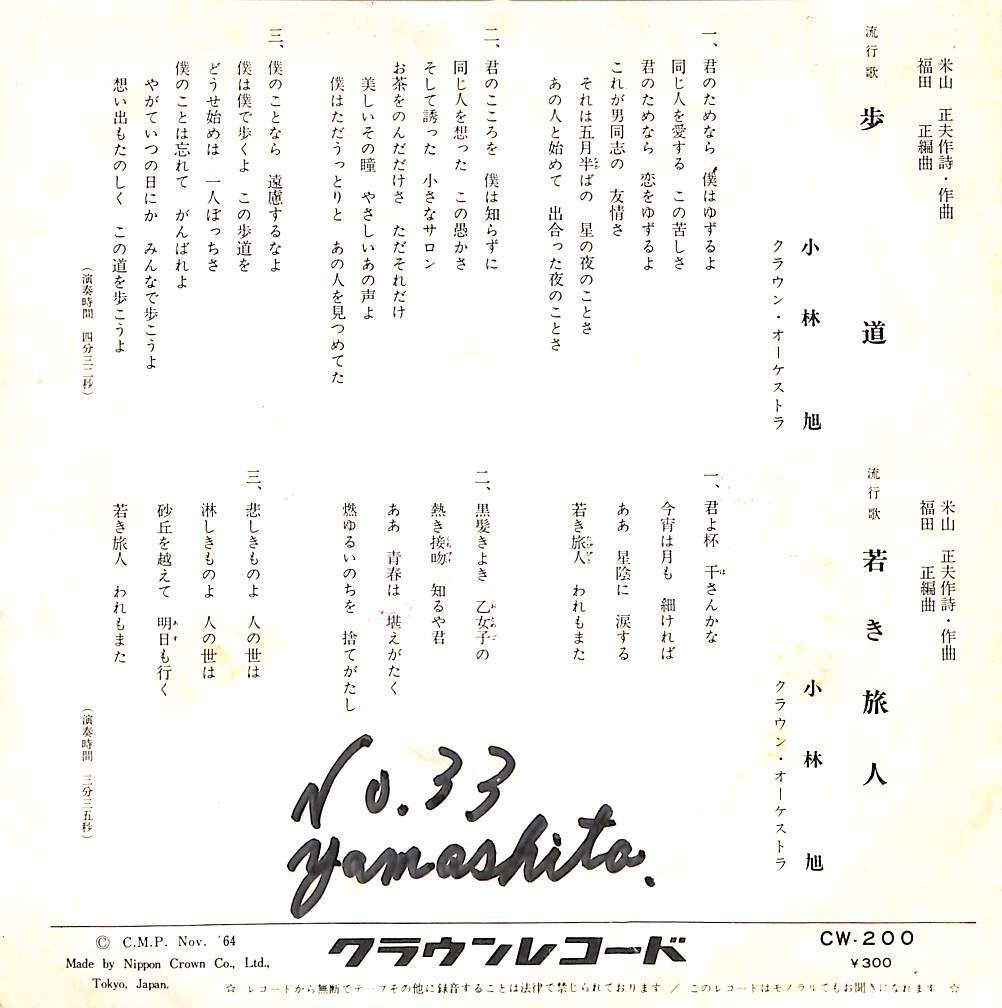 米山 正夫作詩・作曲
福田 正編曲
流行歌 歩道
小林旭
クラウン・オーケストラ
一、君のためなら 僕はゆずるよ
同じ人を愛する この苦しさ
君のためなら 恋をゆずるよ
これが男同志の 友情さ
それは五月半ばの 星の夜のことさ
あの人と始めて 出合った夜のことさ
二、君のこころを 僕は知らずに
同じ人を想った この愚かさ
そして誘った 小さなサロン
お茶をのんだだけさ ただそれだけ
美しいその瞳 やさしいあの声よ
僕はただうっとりと あの人を見つめてた
三、僕のことなら 遠慮するなよ
僕は僕で歩くよ この歩道を
どうせ始めは 一人ぼっちさ
僕のことは忘れて がんばれよ
やがていつの日にか みんなで歩こうよ
想い出もたのしく この道を歩こうよ
(演奏時間 四分三二秒)
米山 正夫作詩・作曲
福田 正編曲
流行歌 若き旅人
小林旭
クラウン・オーケストラ
一、君よ杯 干さんかな
今宵は月も 細ければ
ああ 星陰に 涙する
若き旅人 われもまた
二、黒髪きよき 乙女子の
熱き接吻 知るや君
ああ 青春は 堪えがたく
燃ゆるいのちを 捨てがたし
三、悲しきものよ 人の世は
淋しきものよ 人の世は
砂丘を越えて 明日も行く
若き旅人 われもまた
(演奏時間 三分三五秒)
No.33
yamashita.
© C.M.P. Nov. '64
Made by Nippon Crown Co., Ltd.,
Tokyo, Japan.
クラウンレコード
CW-200
¥300
☆ レコードから無断でテープその他に録音することは法律で禁じられております / このレコードはモノラルでもお聞きになれます ☆